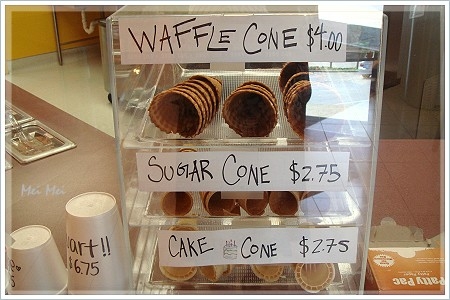 WAFFLE CONE $4.00
SUGAR CONE $2.75
CAKE CONE $2.75
Mei Mei
art!!
$6.75
Patty Pac